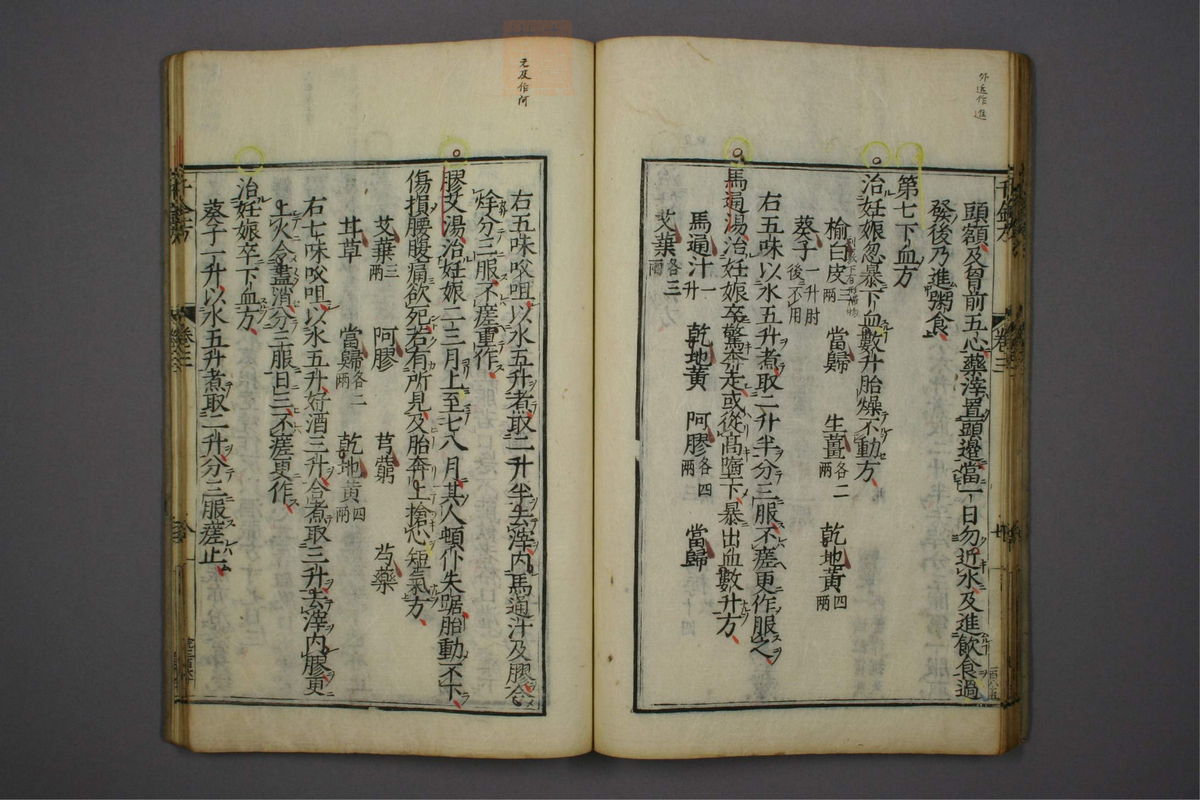 外近作進
頭額及胷前五心藥滓置頭邊當一日勿近水及進飲食過
發後乃進粥食
第七下血方
治妊娠忽暴下血數升胎燥不動方
榆白皮三兩 當歸 生薑各二兩 乾地黃四兩
葵子一升肘後不用
右五味以水五升煮取二升半分三服不瘥更作服之
馬通湯治妊娠卒驚奔走或從高墮下暴出血數升方
馬通汁一升 乾地黃 阿膠各四兩 當歸
艾葉各三兩
千金方 卷三
元及作何
右五味㕮咀以水五升煮取二升半去滓内馬通汁及膠令
烊分三服不瘥重作
膠艾湯治妊娠二三月上至七八月其人頓仆失踞胎動不下
傷損腰腹痛欲死若有所見及胎奔上搶心短氣方
艾葉三兩 阿膠 芎藭 芍藥
甘草 當歸各二兩 乾地黃四兩
右七味㕮咀以水五升好酒三升合煮取三升去滓内膠更
上火令盡消分三服日三不瘥更作
治妊娠卒下血方
葵子一升以水五升煮取二升分三服瘥止
千金方 卷三